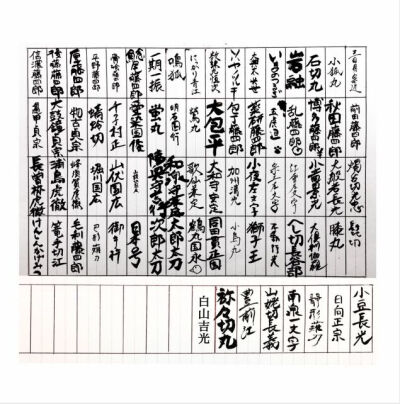 三日月宗近 前田藤四郎 燭台切光忠 髭切
小狐丸 秋田藤四郎 大般若長光 膝丸
石切丸 博多藤四郎 小竜景光 大倶利伽羅
岩融 乱藤四郎 へし切長谷部
いまのつるぎ 五虎退 不動行光
大典太光世 薬研藤四郎 小夜左文字 獅子王
ソハヤノツルキ 包丁藤四郎 加州清光 小烏丸
数珠丸恒次 大包平 大和守安定 同田貫正国
にっかり青江 鶯丸 歌仙兼定 鶴丸国永
鳴狐 明石国行 和泉守兼定 太郎太刀
一期一振 蛍丸 陸奥守吉行 次郎太刀
鯰尾藤四郎 日本号
骨喰藤四郎 千子村正 山伏国広 御手杵
平野藤四郎 蜻蛉切 堀川国広 巴形薙刀
厚藤四郎 物吉貞宗 蜂須賀虎徹 毛利藤四郎
後藤藤四郎 太鼓鐘貞宗 浦島虎徹 篭手切江
信濃藤四郎 亀甲貞宗 長曽祢虎徹 けんしんかげみつ
小豆長光
日向正宗
静形薙刀
南泉一文字
山姥切長義
豊前江
祢々切丸
白山吉光